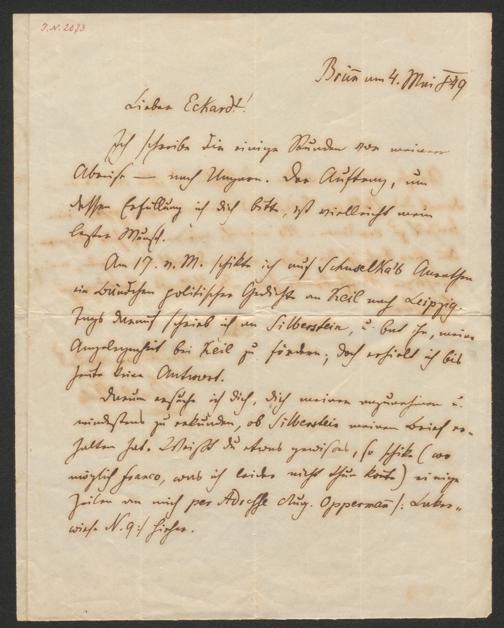 J.N. 2083
Brünn am 4. Mai 849
Lieber Eckardt!
Ich schreibe Dir einige Stunden vor meiner
Abreise — nach Ungarn. Der Auftrag, um
dessen Erfüllung ich dich bitte, ist vielleicht mein
lezter Wunsch.
Am 17. v. M. schikte ich auf Schuselka's Anrathen
ein Bändchen politischer Gedichte an Keil nach Leipzig.
Tags darauf schrieb ich an Silberstein, u. bat ihn, meine
Angelegenheit bei Keil zu fördern; doch erhielt ich bis
heute keine Antwort.
Darum ersuche ich dich, dich meiner anzunehmen u.
mindestens zu erkunden, ob Silberstein meinen Brief er-
halten hat. Weißt du etwas gewisses, so schike (wo
möglich franco, was ich leider nicht thun konte) einige
Zeilen an mich per Adresse Aug. Oppermann /:
wiese N. 9:/ hieher.